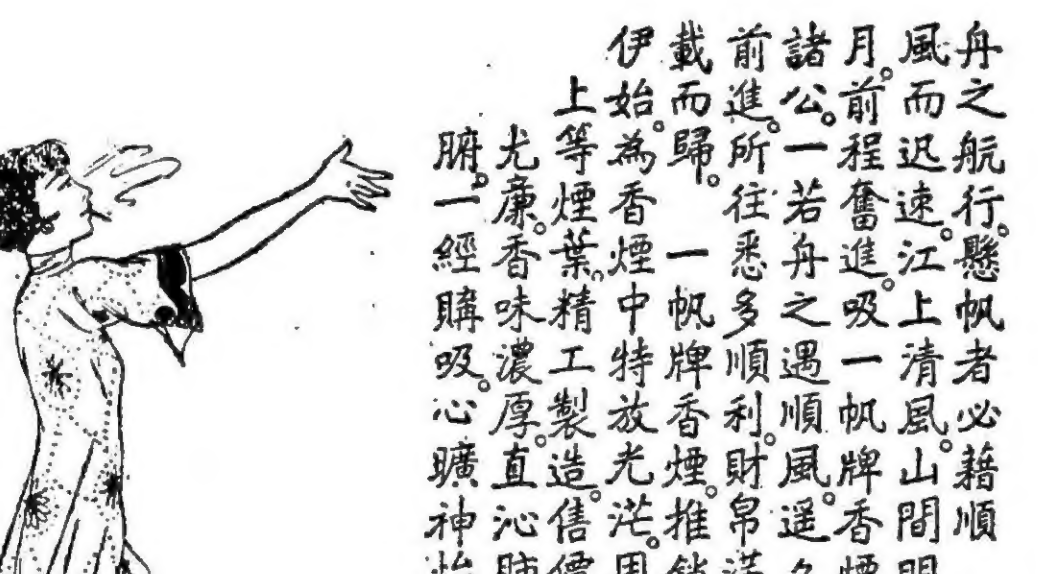 舟之航行。懸帆者必藉順
風而迅速。江上清風。山間明
月。前程奮進。吸一帆牌香煙
諸公。一若舟之遇順風。遥
前進。所往悉多順利。財帛滿
載而歸。一帆牌香煙。推銷
伊始。為香煙中特放光茫。
上等煙葉。精工製造。售價
尤廉。香味濃厚。直沁肺
腑。一經購吸。心曠神怡